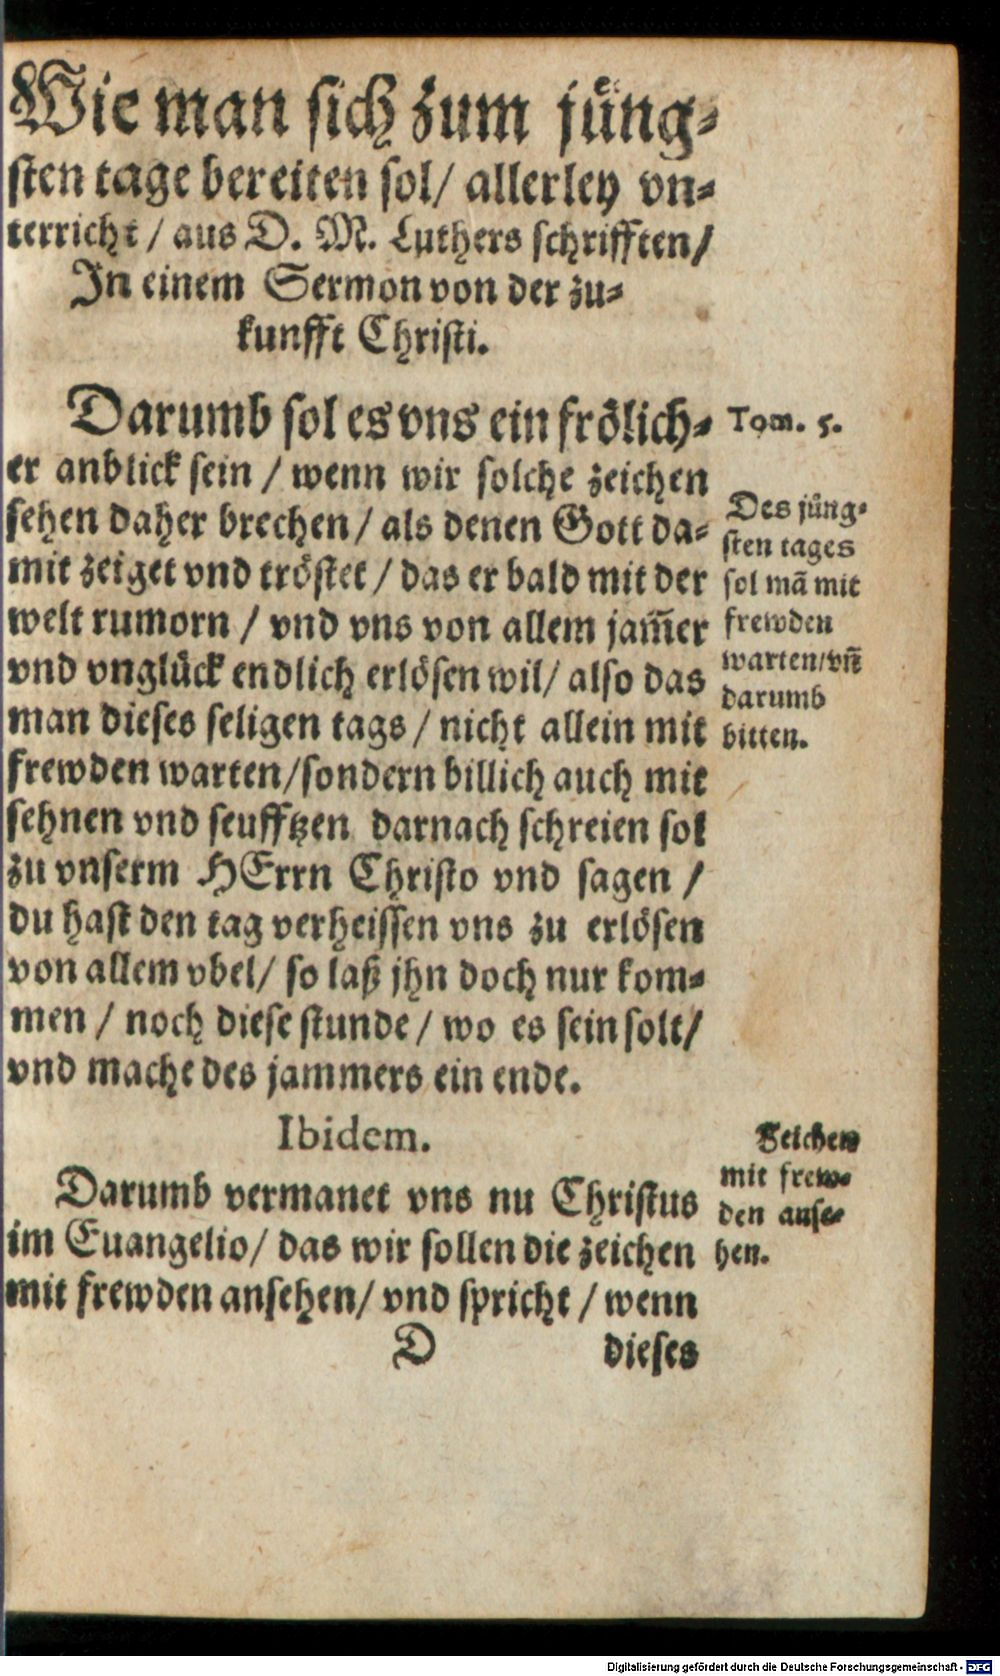 Wie man sich zum jüng-
sten tage bereiten sol/ allerley vn-
terricht / aus D. M. Luthers schrifften/
In einem Sermon von der zu-
kunfft Christi.
Darumb sol es vns ein frölich-
er anblick sein / wenn wir solche zeichen
sehen daher brechen / als denen Gott da-
mit zeiget vnd tröstet / das er bald mit der
welt rumorn / vnd vns von allem jam̄er
vnd vnglück endlich erlösen wil/ also das
man dieses seligen tags / nicht allein mit
frewden warten/sondern billich auch mit
sehnen vnd seufftzen darnach schreien sol
zu vnserm HErrn Christo vnd sagen /
du hast den tag verheissen vns zu erlösen
von allem vbel/ so laß jhn doch nur kom-
men / noch diese stunde / wo es sein solt/
vnd mache des jammers ein ende.
Tom. 5.
Des jüng-
sten tages
sol mã mit
frewden
warten/vñ
darumb
bitten.
Ibidem.
Darumb vermanet vns nu Christus
im Euangelio/ das wir sollen die zeichen
mit frewden ansehen/ vnd spricht / wenn
Zeichen
mit frew-
den anse-
hen.
D dieses
Digitalisierung gefördert durch die Deutsche Forschungsgemeinschaft - DFG